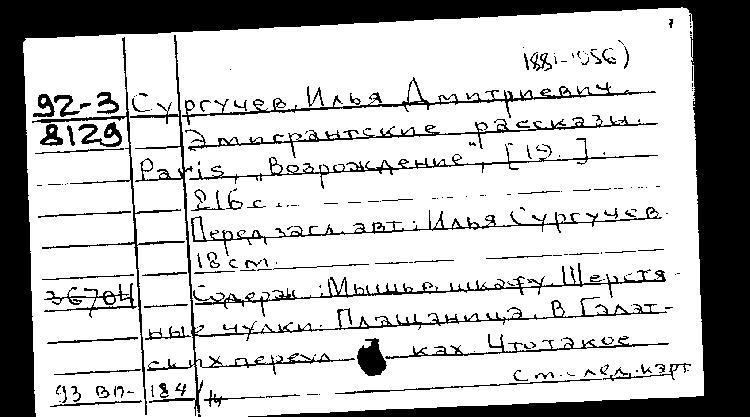 1881-1956)
92-3 Сургучев, Илья Дмитриевич.
8129 Эмигрантские рассказы.
Paris, "Возрождение", [19 . ].
216 с.
Перед загл. авт.: Илья Сургучев.
18 cm.
36704 Содерж.: Мышь в шкафу. Шерстя-
ные чулки. Плащаница. В Галат-
ских переул ках Что такое
см. след. карт
93 ВП- 184